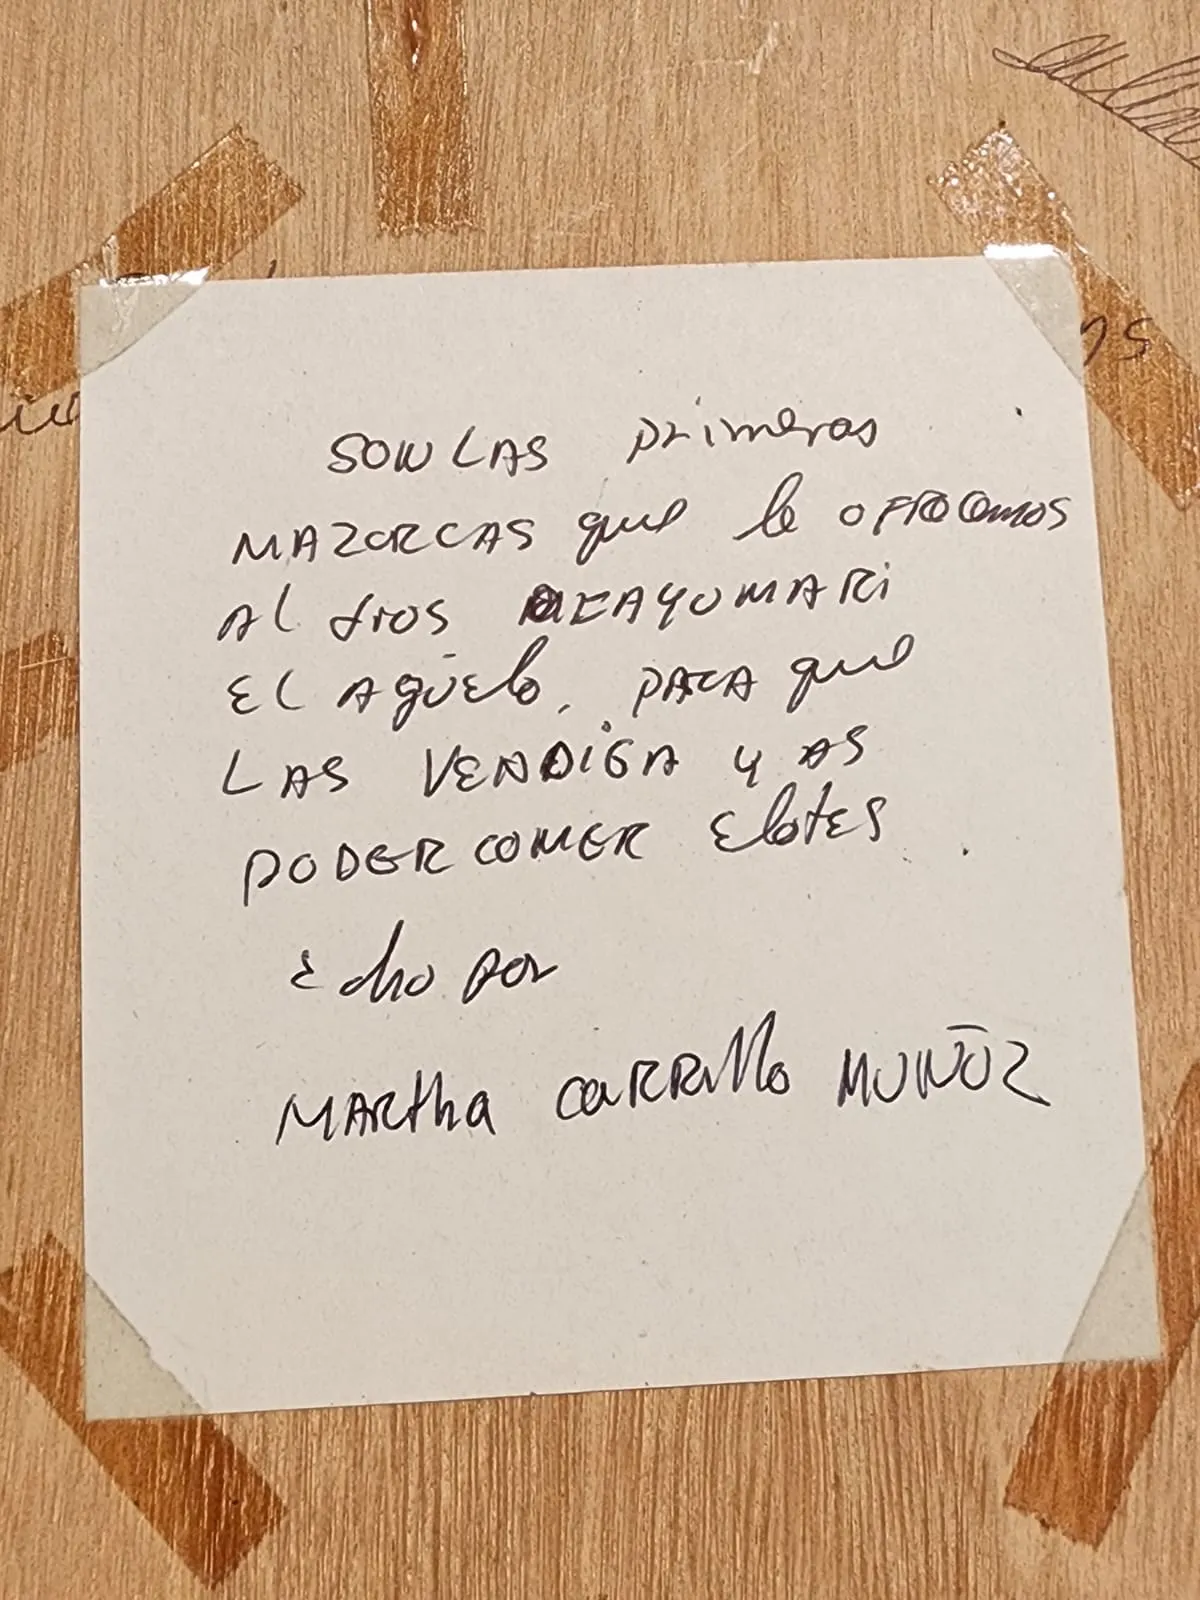 SON LAS primeras
MAZORCAS que le OFROCEMOS
AL dios DEAYUMARI
EL AGÜELO, PARA que
LAS VENDIGA Y AS
PODER COMER ELOTES
Echo por
MARTHA CARRILLO MUÑOZ